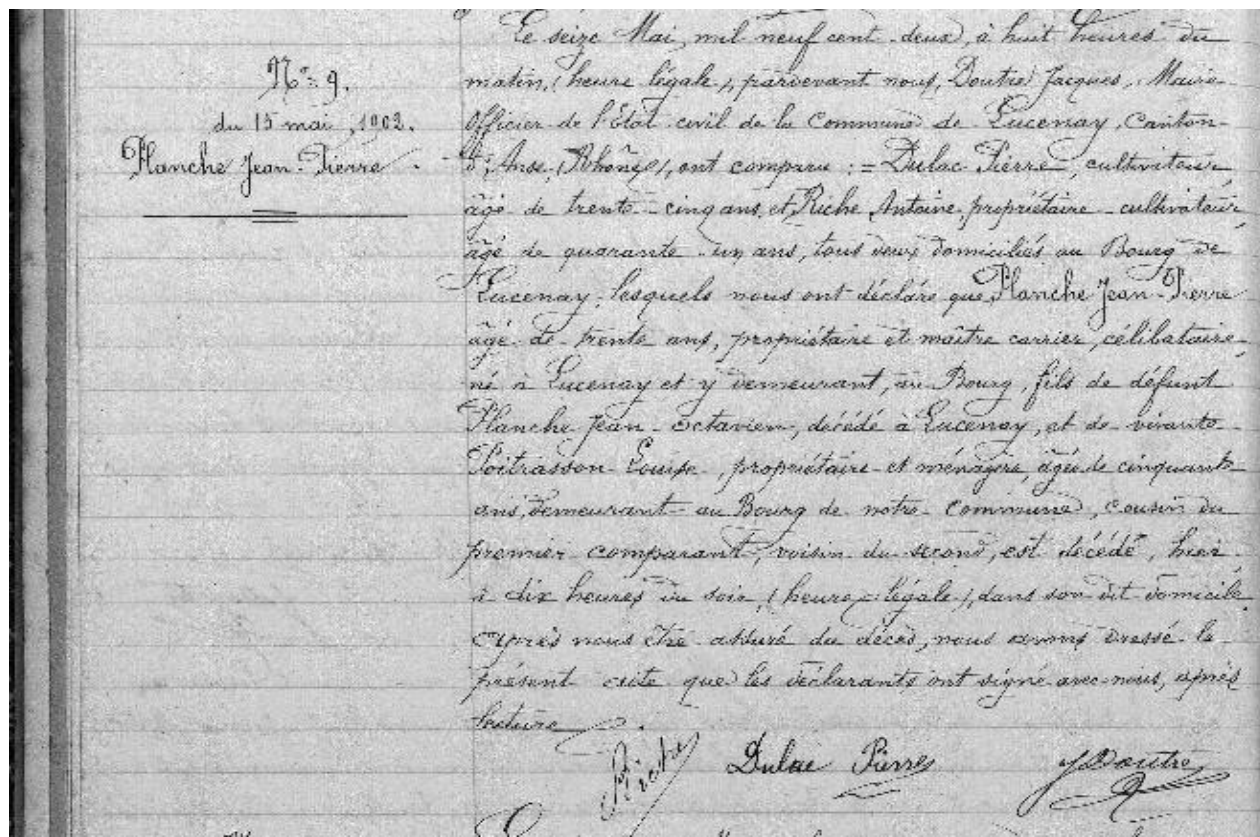 N° 9.
du 15 mai, 1902.
Planche Jean-Pierre
Le seize Mai, mil neuf cent deux, à huit heures du
matin, (heure légale), pardevant nous, Doutre Jacques, Maire
Officier de l'État civil de la Commune de Lucenay, Canton
d'Anse, (Rhône), ont comparu : = Dulac Pierre, cultivateur
âgé de trente-cinq ans, et Riche Antoine, propriétaire-cultivateur,
âgé de quarante-un ans, tous deux domiciliés au Bourg de
Lucenay, lesquels nous ont déclaré que, Planche Jean-Pierre
âgé de trente ans, propriétaire et maître carrier, célibataire,
né à Lucenay et y demeurant, au Bourg, fils de défunt
Planche Jean-Octavien, décédé à Lucenay, et de vivante
Poitrasson Louise, propriétaire et ménagère, âgée de cinquante
ans, demeurant au Bourg de notre Commune, cousin du
premier comparant, voisin du second, est décédé, hier
à dix heures du soir, (heure légale), dans son dit domicile
Après nous être assuré du décès, nous avons dressé le
présent acte que les déclarants ont signé avec nous, après
lecture.
Riche Dulac Pierre J Doutre